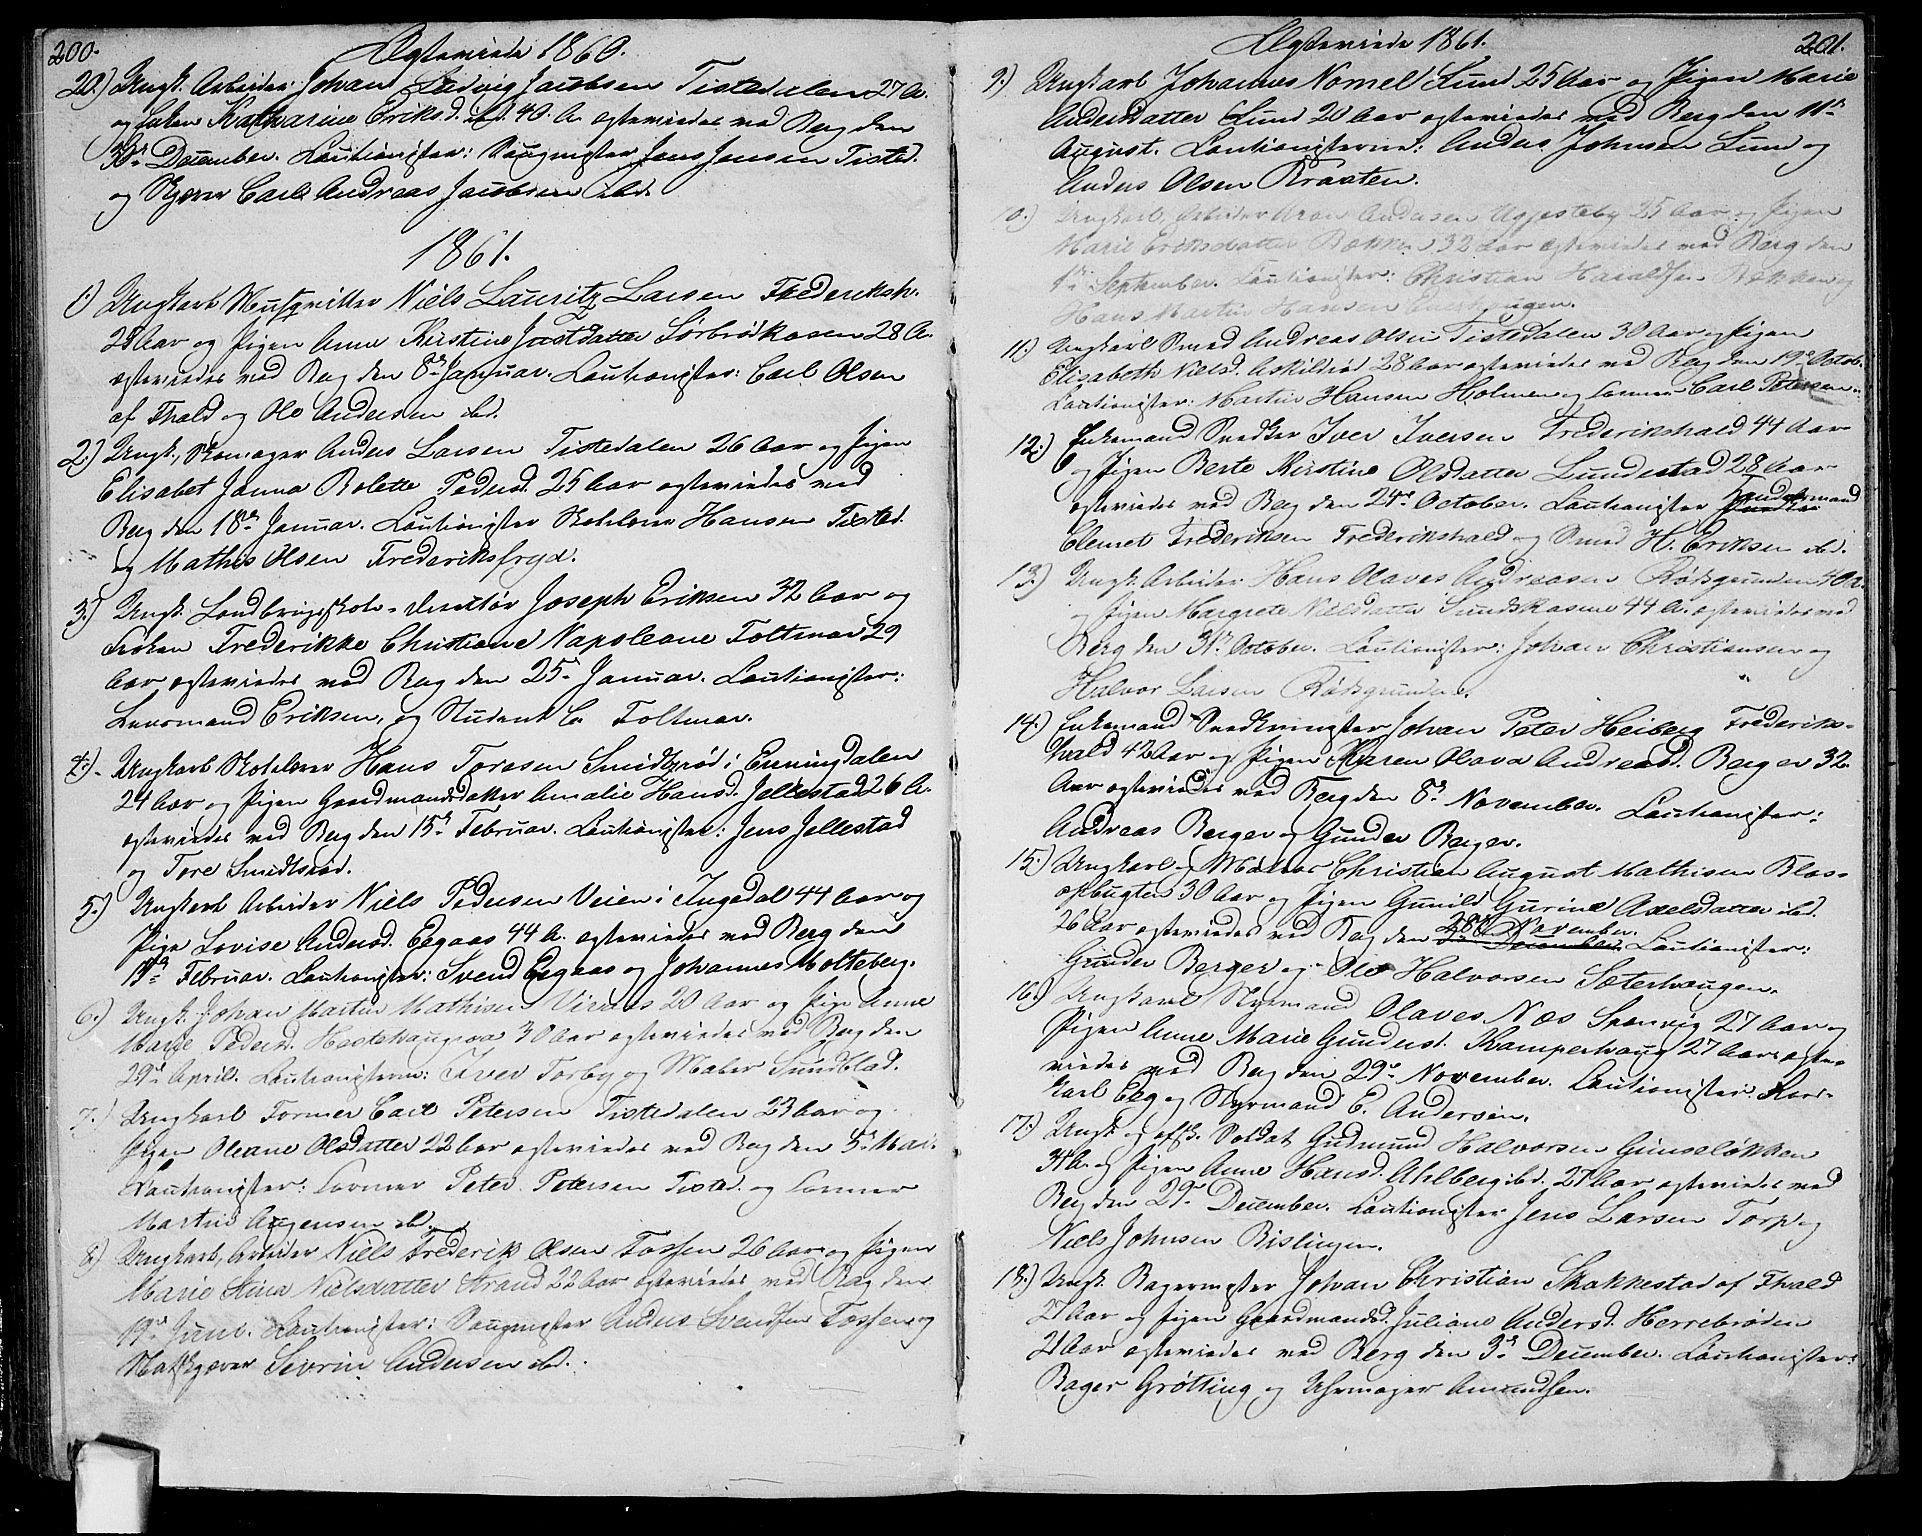 200.
Ægteviede 1860.
20.) Ungk. Arbeider Johan Ludvig Jacobsen Tistedalen 27 A.
og Enken Katharine Eriksd. ibd. 40 A. ægteviedes ved Berg den
30te December. Cautionister: Saugmester Jens Jensen Tisted.
og Skjærer Carl Andreas Jacobsen ibd.
1861.
1.) Ungkarl Musqvitter Niels Lauritz Larsen Frederiksh.
25 Aar og Pigen Anne Kirstine Justdatter Sørbrødkasen 28 A.
ægteviedes ved Berg den 8de Januar. Cautionister: Carl Olsen
af Fhald og Ole Andersen ibd.
2.) Ungk. Skomager Anders Larsen Tistedalen 26 Aar og Pigen
Elisabet Janna Bolette Pedersd. 25 Aar ægteviedes ved
Berg den 18de Januar. Cautionister Skolelærer Hansen Tisted.
og Mathis Olsen Frederiksfryd.
3.) Ungk. Landbrugsskole-Direktør Joseph Eriksen 32 Aar og
Frøken Frederikke Christiane Napoleane Foltmar 29
Aar ægteviedes ved Berg den 25. Januar. Cautionister:
Lensmand Eriksen, og Student C. Foltmar.
4.) Ungkarl Skolelærer Hans Toresen Smidtsrød i Enningdalen
24 Aar og Pigen Gaardmandsdatter Amalie Hansd. Jellestad 26 A.
ægteviedes ved Berg den 15de Februar. Cautionister: Jens Jellestad
og Tore Smidtsrød.
5.) Ungkarl Arbeider Niels Pedersen Veien i Ingedal 44 Aar og
Pige Lovise Andersd. Eegaas 44 A. ægteviedes ved Berg den
19de Februar. Cautionister: Svend Eegaas og Johannes Molteberg.
6.) Ungk. Johan Martin Mathisen 20 Aar og Pige Anne
Marie Pedersd. Hestehaugene 30 Aar ægteviedes ved Berg den
29de April. Cautionisterne: Iver Torby og Maler Sundblad.
7.) Ungkarl Former Carl Petersen Tistedalen 23 Aar og
Pigen Oleane Olsdatter 22 Aar ægteviedes ved Berg den 5. Mai.
Cautionister: Former Peter Petersen Tisted. og Former
Martin Aagensen ibd.
8.) Ungkarl, Arbeider Niels Frederik Olsen Fossen 26 Aar og Pigen
Marie Stina Nielsdatter Strand 22 Aar ægteviedes ved Berg den
19de Juni. Cautionister: Saugmester Anders Svendsen Fossen og
Severin Andersen ibd.
Ægteviede 1861.
201.
9.) Ungkarl Johannes Nomel Lund 25 Aar og Pigen Marie
Andersdatter Lund 20 Aar ægteviedes ved Berg den 11te
August. Cautionisterne: Anders Johnsen Lund og
Anders Olsen Braaten.
10.) Ungkarl, Arbeider Aron Andersen 25 Aar og Pigen
Marie Eriksdatter Bækken 32 Aar ægteviedes ved Berg den
1te September. Cautionister: Christian Haraldsen Bækken og
Hans Martin Hansen
11.) Ungkarl Smed Andreas Olsen Tistedalen 30 Aar og Pigen
Elisabeth Nielsd. Askildrød 28 Aar ægteviedes ved Berg den 19de Octob.
Cautionister: Martin Hansen Holmen og Former Carl Petersen.
12.) Enkemand Snedker Iver Iversen Frederikshald 44 Aar
og Pigen Berte Kirstine Olsdatter Lundestad 28 Aar
ægteviedes ved Berg den 24de October. Cautionister Fundtermand
Clemet Frederiksen Frederikshald og Smed H. Eriksen ibd.
13.) Ungk. Arbeider Hans Olaves Andreasen Rødsgrunden 40 A.
og Pigen Margrete Nielsdatter Sundskasene 44 A. ægteviedes ved
Berg den 31te October. Cautionister: Johan Christiansen og
Halvor Larsen Rødsgrunden.
14.) Enkemand Snedkermester Johan Peter Heiberg Frederiks-
hald 42 Aar og Pigen Karen Olava Andreasd. Berger 32
Aar ægteviedes ved Berg den 8de November. Cautionister:
Andreas Berger og Gunder Berger.
15.) Ungkarl og Matros Christian August Mathisen Blas-
opbugten 30 Aar og Pigen Gunild Gurine Axelsdatter ibd.
26 Aar ægteviedes ved Berg den 28de November. Cautionister:
Gunder Berger og Ole Halvorsen Sæterhaugen.
16.) Ungkarl Styrmand Olaves Næs Sponvig 27 Aar og
Pigen Anne Marie Gundersd. Kamperhaug 27 Aar ægte-
viedes ved Berg den 29de November. Cautionister: Kors-
karl Eeg og Styrmand E. Andersen.
17.) Ungk. og afsk. Soldat Gudmund Halvorsen Gimseløkken
31 A. og Pigen Anne Hansd. Ahlberg ibd. 27 Aar ægteviedes ved
Berg den 29de December. Cautionister Jens Larsen Torp og
Niels Johnsen Rislingen.
18.) Ungk. Bagermester Johan Christian Skakkestad af Fhald
27 Aar og Pigen Gaardmandsd. Juliane Andersd. Herrebrøden
21 Aar ægteviedes ved Berg den 3de December. Cautionister:
Bager Grøtting og Uhrmager Amundsen.